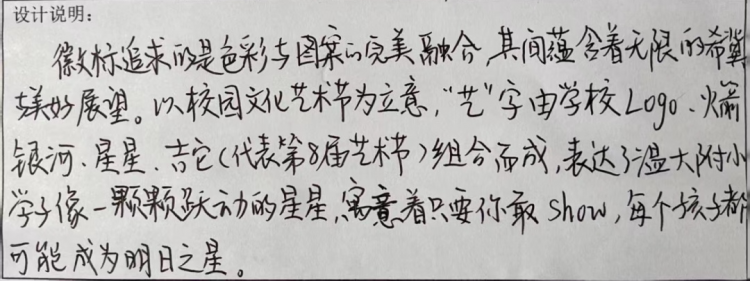 设计说明：
徽标追求的是色彩与图案的完美融合，其间蕴含着无限的希冀
与美好展望。以校园文化艺术节为立意，“艺”字由学校Logo、火箭
银河、星星、吉它（代表第8届艺术节）组合而成，表达了温大附小
学子像一颗颗跃动的星星，寓意着只要你敢show，每个孩子都
可能成为明日之星。